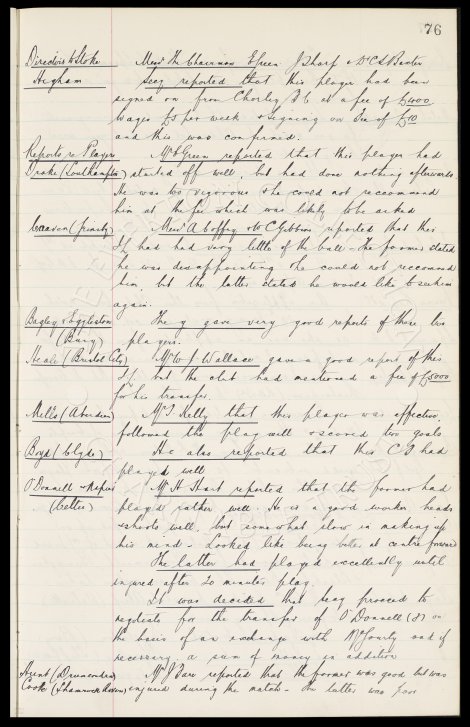 76
Directors to Stoke Messrs The Chairman E Green J Sharp & Dr C S Baxter
Higham Secy reported that this player had been
signed on from Chorley F C at a fee of £400
Wages £5 per week & signing on fee of £10
and this was confirmed.
Reports re Players Mr E Green reported that this player had
Drake (Southampton) started off well, but had done nothing afterwards
He was too vigorous & he could not recommend
him at the fee which was likely to be asked
Craven (Grimsby) Messrs A Coffey & C Gibbins reported that this
I/L had had very little of the ball. The former stated
he was disappointing & he could not recommend
him, but the latter stated he would like to see him
again.
Bagley & Eggleston The gave very good reports of these two
(Bury) players.
Heale (Bristol City) Mr W J Wallace gave a good report of this
I/L but the club had mentioned a fee of £5000
for his transfer.
Mills (Aberdeen) Mr T Kelly that this player was effective,
followed the play well & scored two goals
Boyd (Clyde) He also reported that this C F had
played well
O'Donnell & Napier Mr H Hart reported that the former had
(Celtic) played rather well He is a good worker heads
& shoots well, but somewhat slow in making up
his mind - Looked like being better at centre forward
The latter had played excellently until
injured after 20 minutes play.
It was decided that Secy proceed to
negotiate for the transfer of O'Donnell on
the basis of an exchange with McGourty and if
necessary, a sum of money in addition
(Drumcondra) Mr J reported that the former was good but was
Cook (Shamrock Rovers) injured during the match - the latter was poor